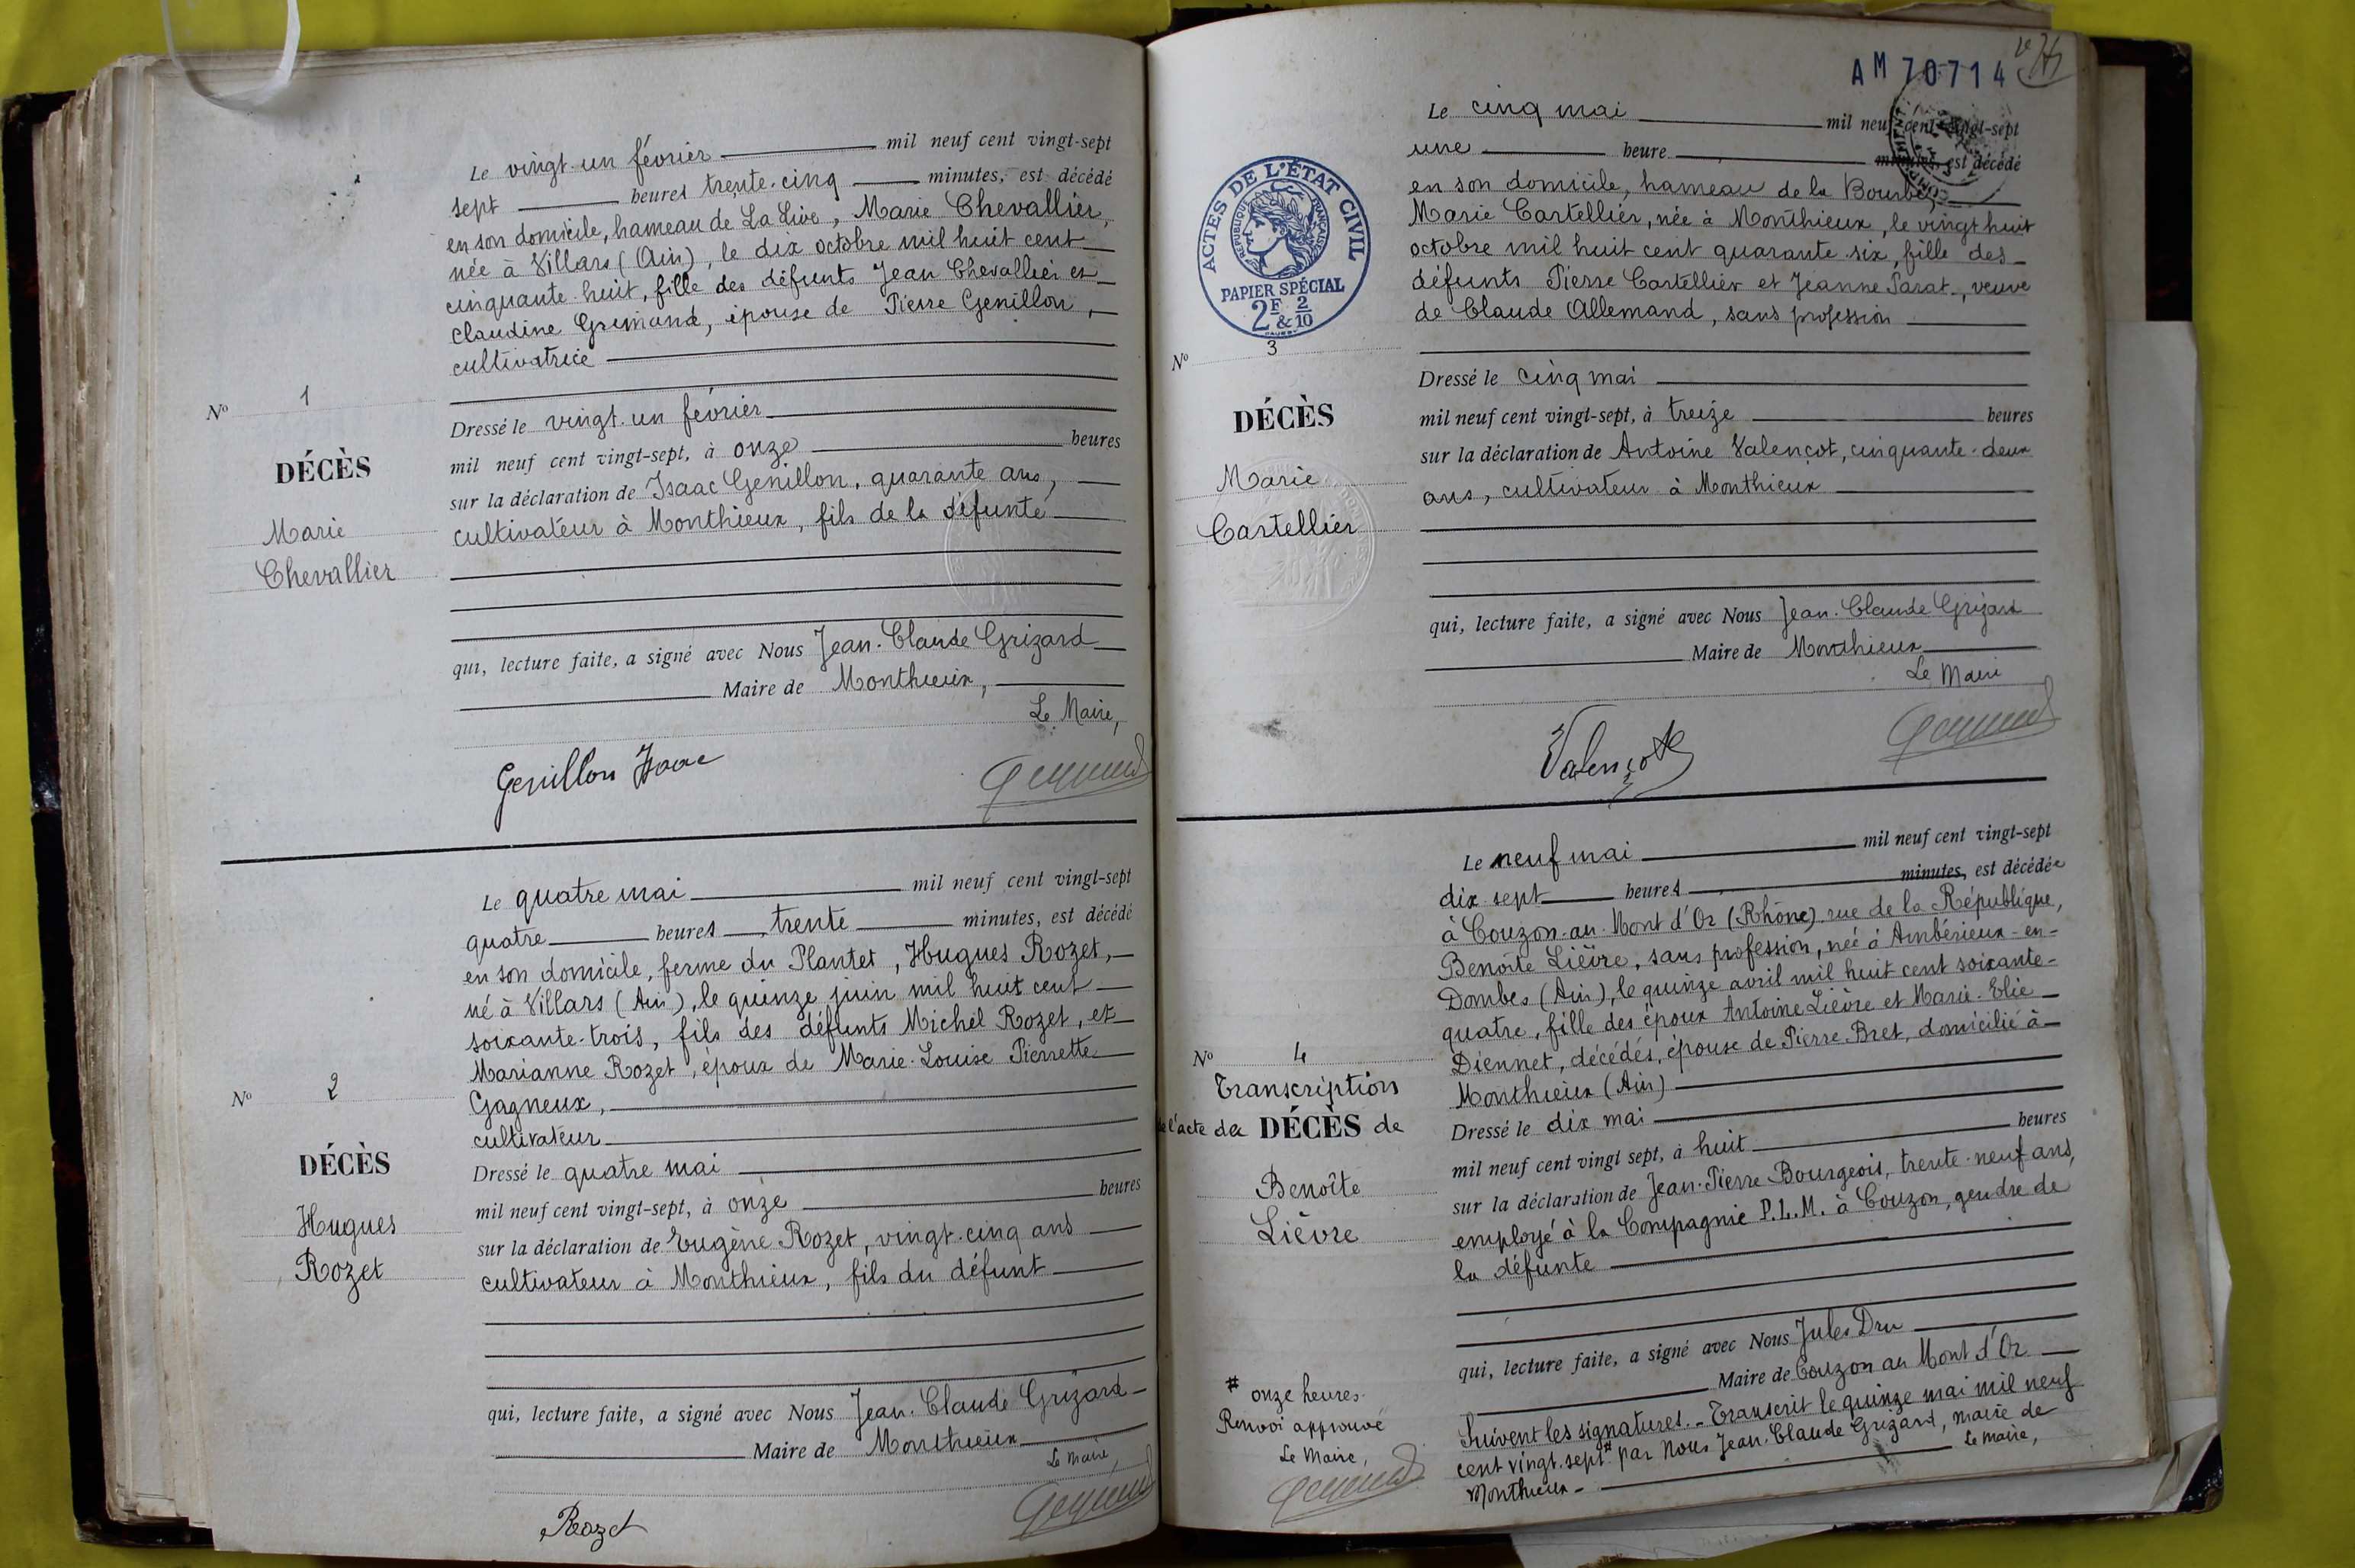 Le vingt-un février mil neuf cent vingt-sept
sept heures trente-cinq minutes, est décédé
en son domicile, hameau de La Live, Marie Chevallier,
née à Villars (Ain), le dix octobre mil huit cent
cinquante-huit, fille des défunts Jean Chevallier et
Claudine Grimand, épouse de Pierre Genillon,
cultivatrice
Nº 1
DÉCÈS
Marie
Chevallier
Dressé le vingt-un février
mil neuf cent vingt-sept, à onze heures
sur la déclaration de Isaac Genillon, quarante ans,
cultivateur à Monthieux, fils de la défunte
qui, lecture faite, a signé avec Nous Jean-Claude Grizard
Maire de Monthieux,
Le Maire,
Genillon Isaac
Le quatre mai mil neuf cent vingt-sept
quatre heures trente minutes, est décédé
en son domicile, ferme du Plantet, Hugues Rozet,
né à Villars (Ain), le quinze juin mil huit cent
soixante-trois, fils des défunts Michel Rozet, et
Marianne Rozet, époux de Marie-Louise Pierrette
Gagneux,
cultivateur
Nº 2
DÉCÈS
Hugues
Rozet
Dressé le quatre mai
mil neuf cent vingt-sept, à onze heures
sur la déclaration de Eugène Rozet, vingt-cinq ans
cultivateur à Monthieux, fils du défunt
qui, lecture faite, a signé avec Nous Jean-Claude Grizard
Maire de Monthieux
Le Maire,
Rozet
AM 70714
ACTES DE L'ÉTAT CIVIL
RÉPUBLIQUE FRANÇAISE
PAPIER SPÉCIAL
2F & 2/10
Le cinq mai mil neuf cent vingt-sept
une heure minutes, est décédé
en son domicile, hameau de la Bourbe,
Marie Cartellier, née à Monthieux, le vingt huit
octobre mil huit cent quarante-six, fille des
défunts Pierre Cartellier et Jeanne Parat, veuve
de Claude Allemand, sans profession
Nº 3
DÉCÈS
Marie
Cartellier
Dressé le cinq mai
mil neuf cent vingt-sept, à treize heures
sur la déclaration de Antoine Valençot, cinquante-deux
ans, cultivateur à Monthieux
qui, lecture faite, a signé avec Nous Jean-Claude Grizard
Maire de Monthieux
Le Maire
Valençot
Le neuf mai mil neuf cent vingt-sept
dix-sept heures minutes, est décédée
à Couzon-au-Mont d'Or (Rhône) rue de la République,
Benoîte Lièvre, sans profession, née à Ambérieux-en-
Dombes (Ain), le quinze avril mil huit cent soixante-
quatre, fille des époux Antoine Lièvre et Marie-Elie
Diennet, décédés, épouse de Pierre Bret, domicilié à
Monthieux (Ain)
Nº 4
Transcription
de l'acte de DÉCÈS de
Benoîte
Lièvre
Dressé le dix mai
mil neuf cent vingt sept, à huit heures
sur la déclaration de Jean-Pierre Bourgeois, trente-neuf ans,
employé à la Compagnie P.L.M. à Couzon, gendre de
la défunte
qui, lecture faite, a signé avec Nous Jules Dru
Maire de Couzon au Mont d'Or
Suivent les signatures. - Transcrit le quinze mai mil neuf
cent vingt-sept # par Nous Jean-Claude Grizard, maire de
Monthieux - Le Maire,
# onze heures.
Renvoi approuvé
Le Maire,